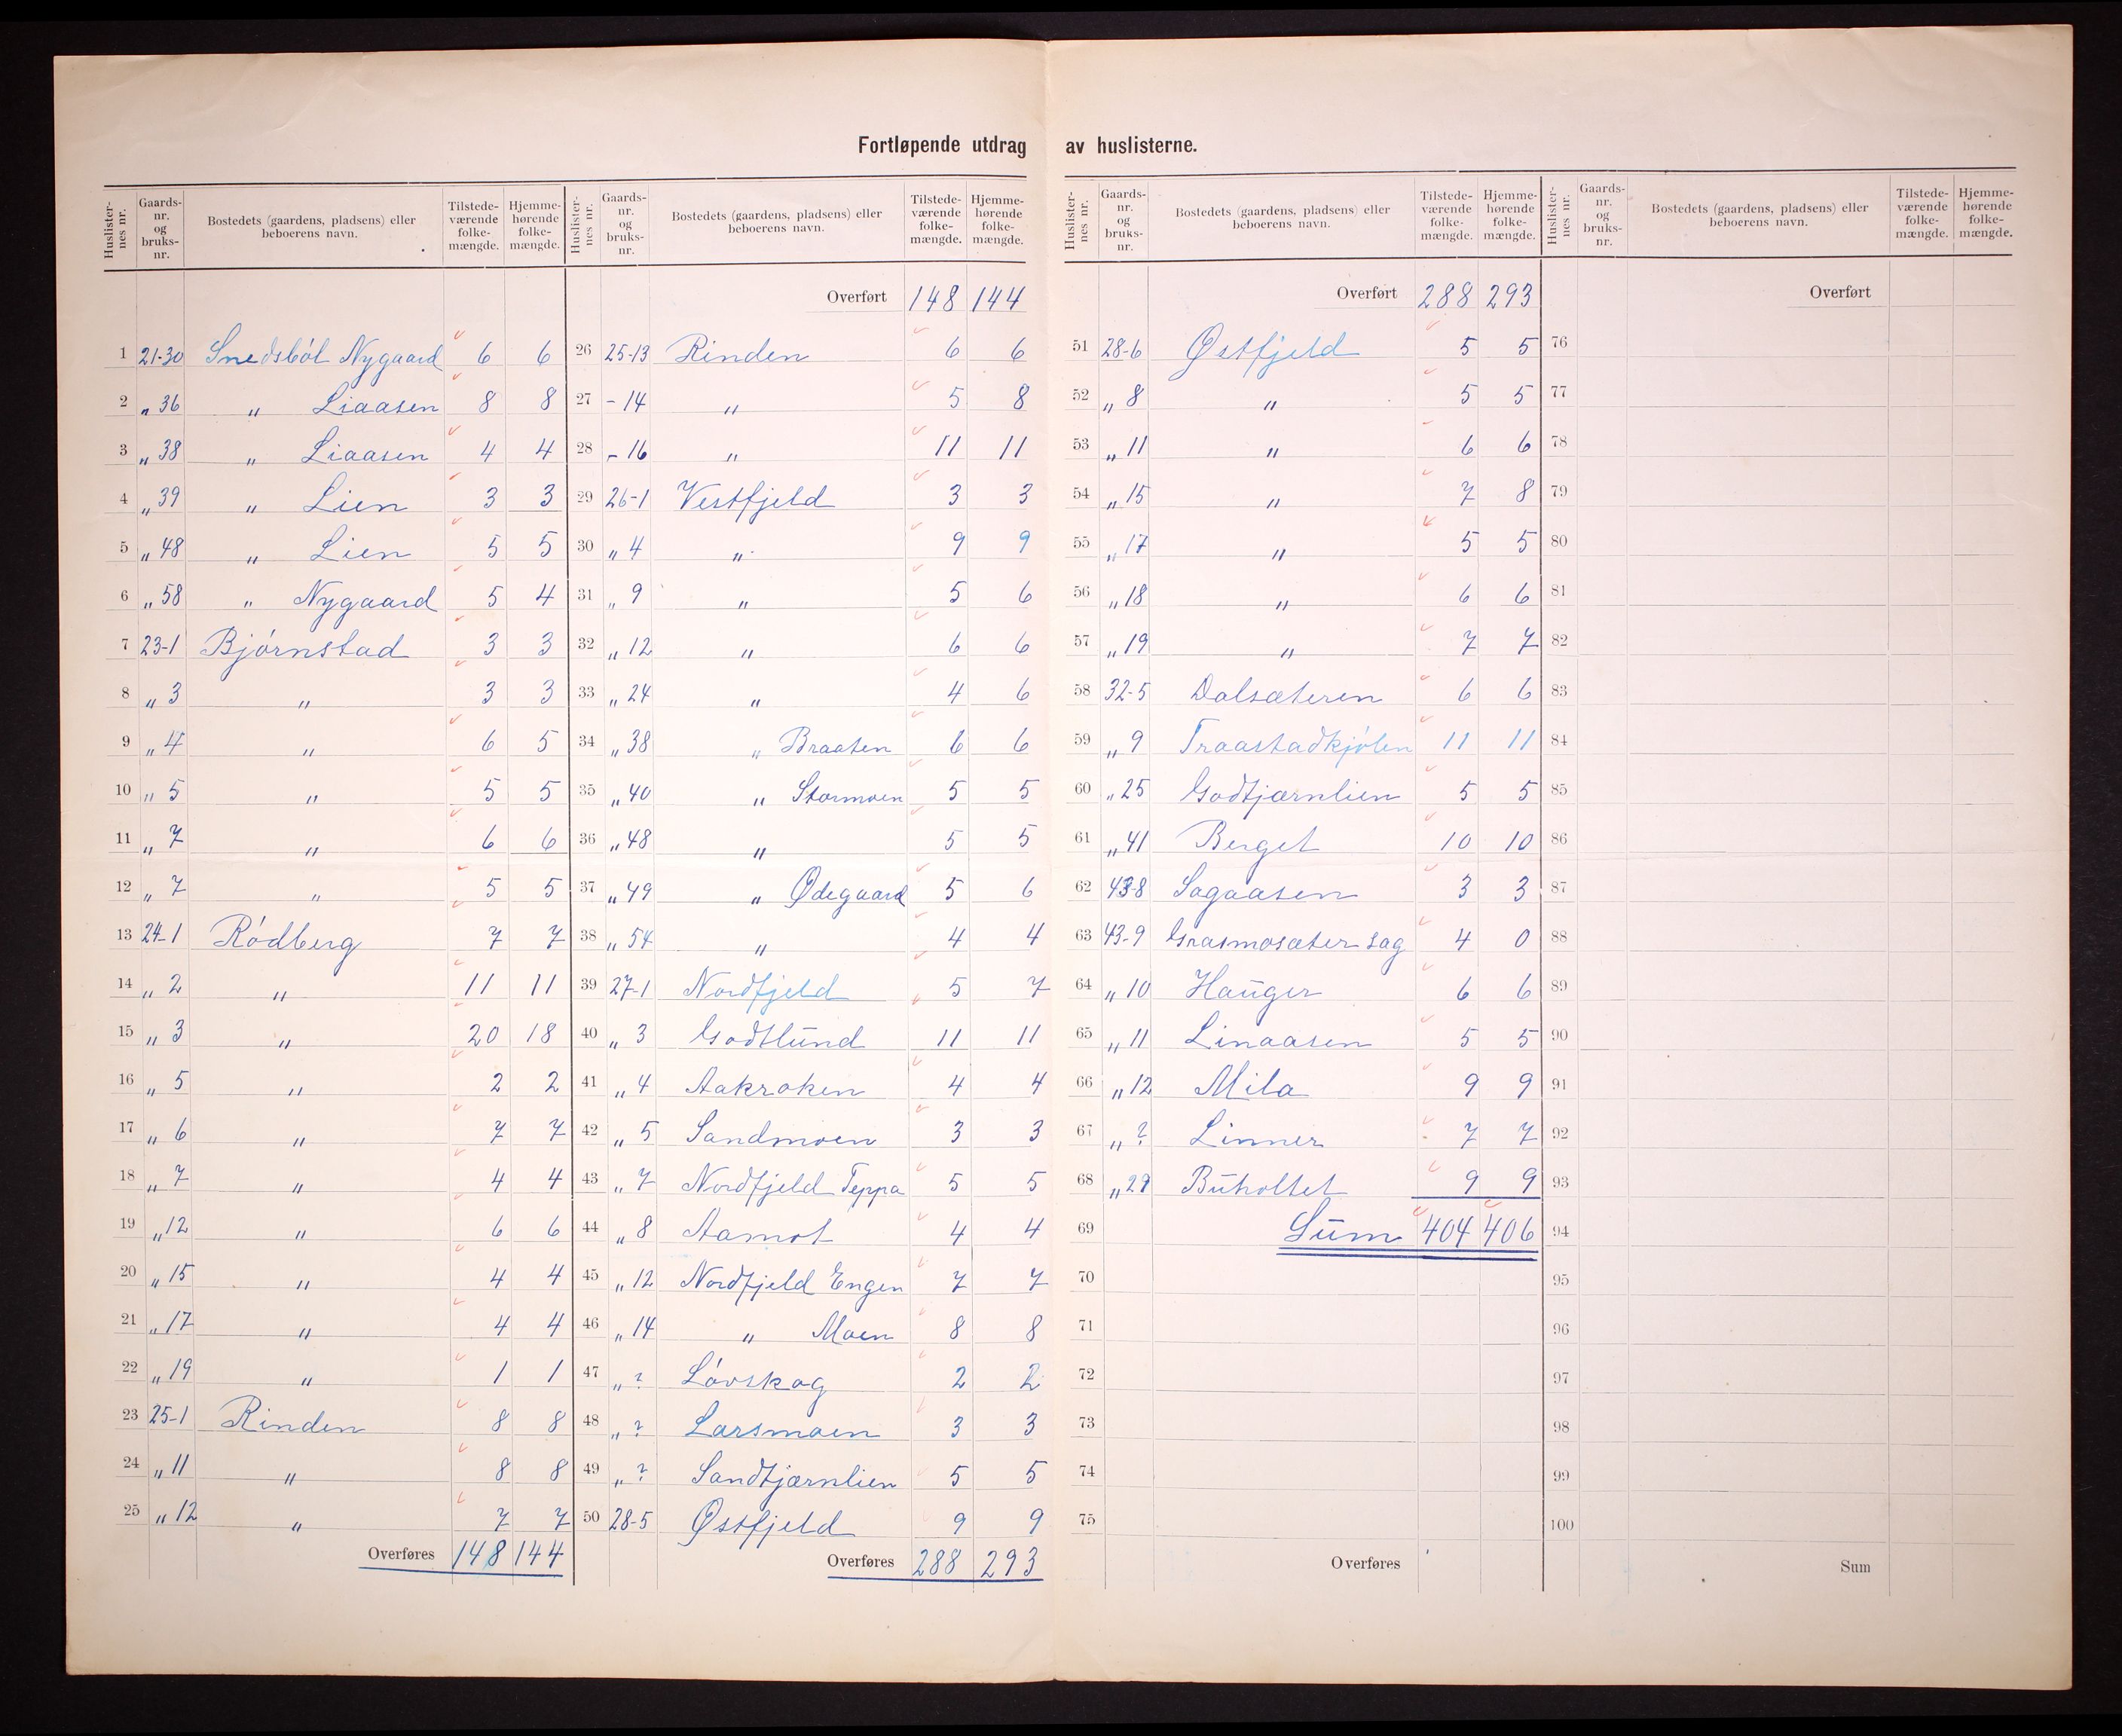 Fortløpende utdrag av huslisterne.
Huslister-nes nr. Gaards-nr. og bruks-nr. Bostedets (gaardens, pladsens) eller beboerens navn. Tilstede-værende folke-mængde. Hjemme-hørende folke-mængde.
1 21-30 Snedsböl Nygaard 6 6
2 „ 36 „ Liaasen 8 8
3 „ 38 „ Liaasen 4 4
4 „ 39 „ Lien 3 3
5 „ 48 „ Lien 5 5
6 „ 58 „ Nygaard 5 4
7 23-1 Bjørnstad 3 3
8 „ 3 „ 3 3
9 „ 4 „ 6 5
10 „ 5 „ 5 5
11 „ 7 „ 6 6
12 „ 7 „ 5 5
13 24-1 Rödberg 7 7
14 „ 2 „ 11 11
15 „ 3 „ 20 18
16 „ 5 „ 2 2
17 „ 6 „ 7 7
18 „ 7 „ 4 4
19 „ 12 „ 6 6
20 „ 15 „ 4 4
21 „ 17 „ 4 4
22 „ 19 „ 1 1
23 25-1 Rinden 8 8
24 „ 11 „ 8 8
25 „ 12 „ 7 7
Overføres 148 144
Huslister-nes nr. Gaards-nr. og bruks-nr. Bostedets (gaardens, pladsens) eller beboerens navn. Tilstede-værende folke-mængde. Hjemme-hørende folke-mængde.
Overført 148 144
26 25-13 Rinden 6 6
27 - 14 „ 5 8
28 - 16 „ 11 11
29 26-1 Vestfjeld 3 3
30 „ 4 „ 9 9
31 „ 9 „ 5 6
32 „ 12 „ 6 6
33 „ 24 „ 4 6
34 „ 38 „ Braaten 6 6
35 „ 40 „ Stormoen 5 5
36 „ 48 „ 5 5
37 „ 49 „ Ødegaard 5 6
38 „ 54 „ 4 4
39 27-1 Nordfjeld 5 7
40 „ 3 Godtlund 11 11
41 „ 4 Aakroken 4 4
42 „ 5 Sandmoen 3 3
43 „ 7 Nordfjeld Teppa 5 5
44 „ 8 Aamot 4 4
45 „ 12 Nordfjeld Engen 7 7
46 „ 14 „ Moen 8 8
47 „ ? Lövskog 2 2
48 „ ? Larsmoen 3 3
49 „ ? Sandtjærnlien 5 5
50 28-5 Østfjeld 9 9
Overføres 288 293
Huslister-nes nr. Gaards-nr. og bruks-nr. Bostedets (gaardens, pladsens) eller beboerens navn. Tilstede-værende folke-mængde. Hjemme-hørende folke-mængde.
Overført 288 293
51 28-6 Østfjeld 5 5
52 „ 8 „ 5 5
53 „ 11 „ 6 6
54 „ 15 „ 7 8
55 „ 17 „ 5 5
56 „ 18 „ 6 6
57 „ 19 „ 7 7
58 32-5 Dalsæteren 6 6
59 „ 9 Traastadkjölen 11 11
60 „ 25 Godtjærnlien 5 5
61 „ 41 Berget 10 10
62 43-8 Sagaasen 3 3
63 43-9 Grasmosæter sag 4 0
64 „ 10 Hauger 6 6
65 „ 11 Linaasen 5 5
66 „ 12 Mila 9 9
67 „ ? Linner 7 7
68 „ 29 Buholtet 9 9
69 Sum 404 406
70
71
72
73
74
75
Overføres
Huslister-nes nr. Gaards-nr. og bruks-nr. Bostedets (gaardens, pladsens) eller beboerens navn. Tilstede-værende folke-mængde. Hjemme-hørende folke-mængde.
Overført
76
77
78
79
80
81
82
83
84
85
86
87
88
89
90
91
92
93
94
95
96
97
98
99
100
Sum